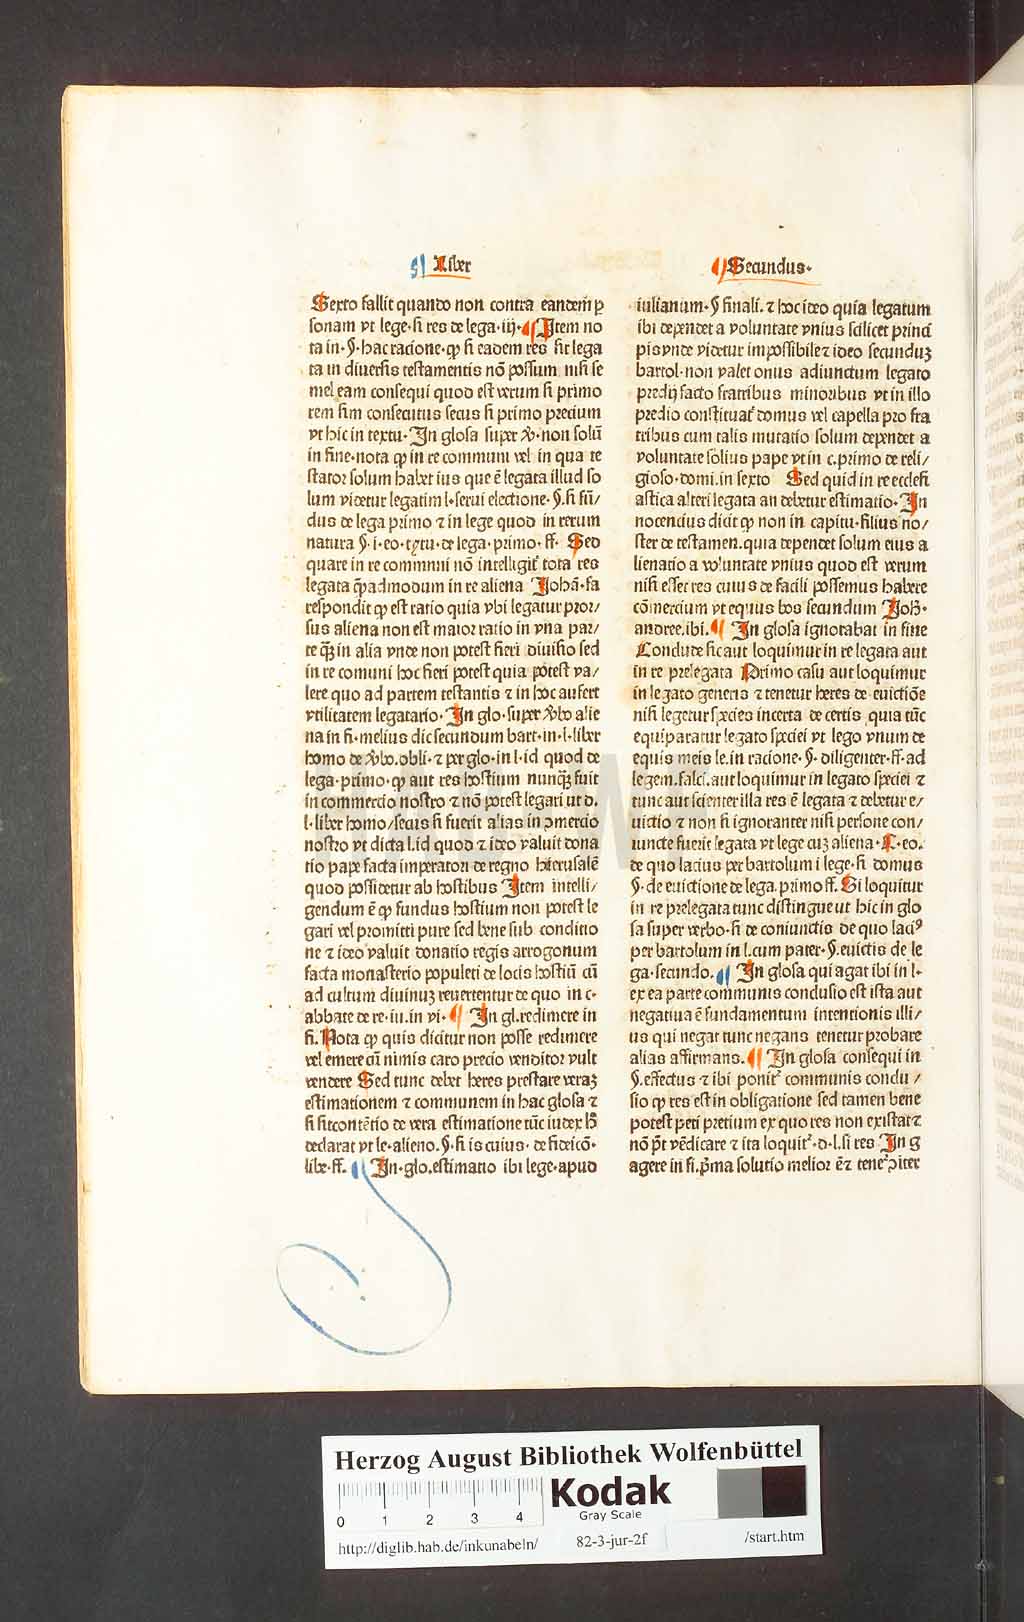 ¶ Liber
¶ Secundus·
Sexto fallit quando non contra eandem̄ ꝑ
sonam vt lege·si res de lega·iij·¶ Item no
ta in·§·hac racione·ꝙ si eadem res sit lega
ta in diuersis testamentis nō possum nisi se
mel eam consequi quod est verum si primo
rem sim consecutus secus si primo precium
vt hic in textu·In glosa super ꝟ·non solū
in fine·nota ꝙ in re communi vel in qua te
stator solum habet ius que ē legata illud so
lum videtur legatim l·serui electione·§·si fū/
dus de lega primo ⁊ in lege quod in rerum
natura §·i·eo·tytu·de lega·primo·ff· Sed
quare in re commnni nō intelligit᷑ tota res
legata q̄padmodum in re aliena Johā·fa
respondit ꝙ est ratio quia vbi legatur pror/
sus aliena non est maior ratio in vna par/
te qꝫ in alia vnde non potest fieri diuisio sed
in re comuni hoc fieri potest quia potest va/
lere quo ad partem testantis ⁊ in hoc aufert
vtilitatem legatario·In glo·super ꝟbo alie
na in fi·melius dic secundum bart·in·l·liber
homo de ꝟbo.obli·⁊ per glo·in l·id quod de
lega·primo·ꝙ aut res hostium nunqꝫ fuit
in commercio nostro ⁊ nō potest legari ut d.
l·liber homo/secus si fuerit alias in ↄmercio
nostro vt dicta l.id quod ⁊ ideo valuit dona
tio pape facta imperatori de regno hierusalē
quod possidetur ab hostibus Item intelli/
gendum ē ꝙ fundus hostium non potest le
gari vel promitti pure sed bene sub conditio
ne ⁊ ideo valuit donatio regis arrogonum
facta monasterio populeti de locis hostiū cū
ad cultum diuinuꝫ reuertentur de quo in c·
abbate de re·iu.in vi·¶ In gl.redimere in
fi.Nota ꝙ quis dicitur non posse redimere
vel emere cū nimis caro precio venditor vult
vendere Sed tunc debet heres prestare veraꝫ
estimationem ⁊ communem in hac glosa ⁊
si sit contētio de vera estimatione tūc iudex hꝫ
declarat vt le·alieno.§·si is cuius·de fideicō·
libe·ff. ¶ In·glo.estimatio ibi lege·apud
iulianum·§ finali.⁊ hoc ideo quia legatum
ibi dependet a voluntate vnius scilicet princi
pis vnde videtur impossibile ⁊ ideo secunduꝫ
bartol·non valet onus adiunctum legato
predij facto fratribus minoribus vt in illo
predio constituat᷑ domus vel capella pro fra
tribus cum talis mutatio solum dependet a
voluntate solius pape vt in c.primo de reli/
gioso·domi.in sexto Sed quid in re ecclesi
astica alteri legata an debetur estimatio·In
nocencius dicit ꝙ non in capitu·filius no/
ster de testamen.quia dependet solum eius a
lienatio a voluntate vnius quod est verum
nisi esset res cuius de facili possemus habere
cōmercium vt equus bos secundum Joh·
andree.ibi.¶ In glosa ignorabat in fine
Conclude sic aut loquimur in re legata aut
in re prelegata Primo casu aut loquimur
in legato generis ⁊ tenetur heres de euictiōe
nisi legetur species incerta de certis quia tūc
equiparatur legato speciei vt lego vnum de
equis meis le.in racione·§·diligenter·ff·ad
legem.falci.aut loquimur in legato speciei ⁊
tunc aut scienter illa res ē legata ⁊ debetur e/
uictio ⁊ non si ignoranter nisi persone con/
iuncte fuerit legata vt lege cuꝫ aliena·C·eo.
de quo lacius per bartolum i lege·si domus
§·de euictione de lega.primo ff.Si loquitur
in re prelegata tunc distingue ut hic in glo
sa super verbo·si de coniunctis de quo laciꝰ
per bartolum in l.cum pater·§.euictis de le
ga·secundo.¶ In glosa qui agat ibi in l·
ex ea parte communis conclusio est ista aut
negatiua ē fundamentum intentionis illi/
us qui negat tunc negans tenetur probare
alias affirmans.¶ In glosa consequi in
§.effectus ⁊ ibi ponit᷑ communis conclu/
sio ꝙ res est in obligatione sed tamen bene
potest peti pretium ex quo res non existat ⁊
nō p̄t vēdicare ⁊ ita loquit᷑·d·l.si res In g
agere in fi.p̄ma solutio melior ē⁊ tene᷑ ↄiter
HAB WF
Herzog August Bibliothek Wolfenbüttel
0 1 2 3 4
Kodak
Gray Scale
http://diglib.hab.de/inkunabeln/ 82-3-jur-2f /start.htm